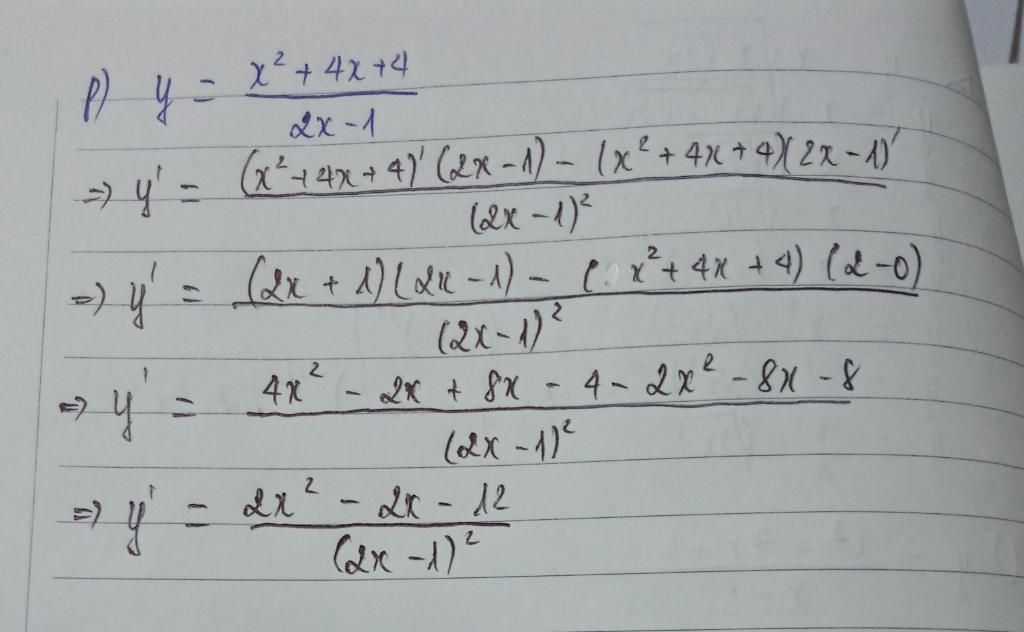 p) y = (x² + 4x + 4) / (2x - 1)
=> y' = ((x² + 4x + 4)' (2x - 1) - (x² + 4x + 4)(2x - 1)') / (2x - 1)²
=> y' = ((2x + 1)(2x - 1) - (x² + 4x + 4) (2 - 0)) / (2x - 1)²
=> y' = (4x² - 2x + 8x - 4 - 2x² - 8x - 8) / (2x - 1)²
=> y' = (2x² - 2x - 12) / (2x - 1)²